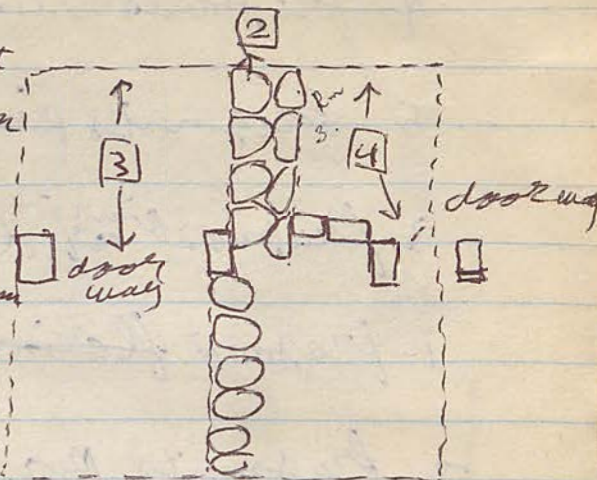 2
Rm
3.
3
4
doorway
door
way